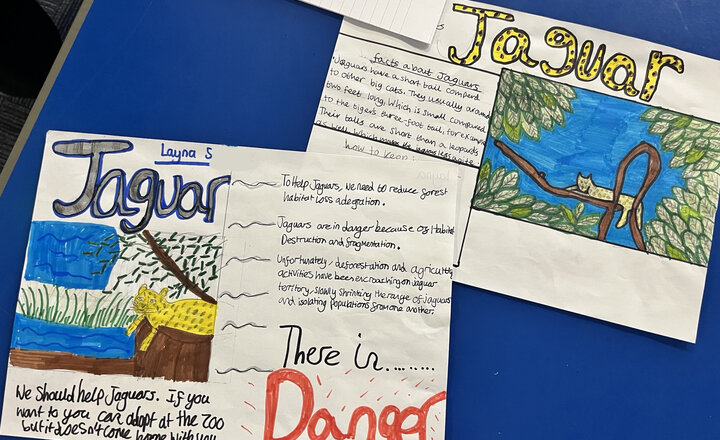 Layna S
Jaguar
To help Jaguars, we need to reduce forest
habitat loss adegration.
Jaguars are in danger because of Habitat
Destruction and fragmentation.
Unfortunately, deforestation and agricultu
activities have been encroaching on jaguar
territory, slowly shrinking the range of Jaguars
and isolating populations from one another.
There in........
Danger
We Should help Jaguars. If you
want to you can adopt at the zoo
but it doesn't come home with you
Jaguar
facts about Jaguars
Jaguars have a short tail compard
to other big cats. They usually around
two feet long. Which is small compared
to the tiger's three-foot tail, for exam
Their tails are short than a leopards
as well, which
how to keep